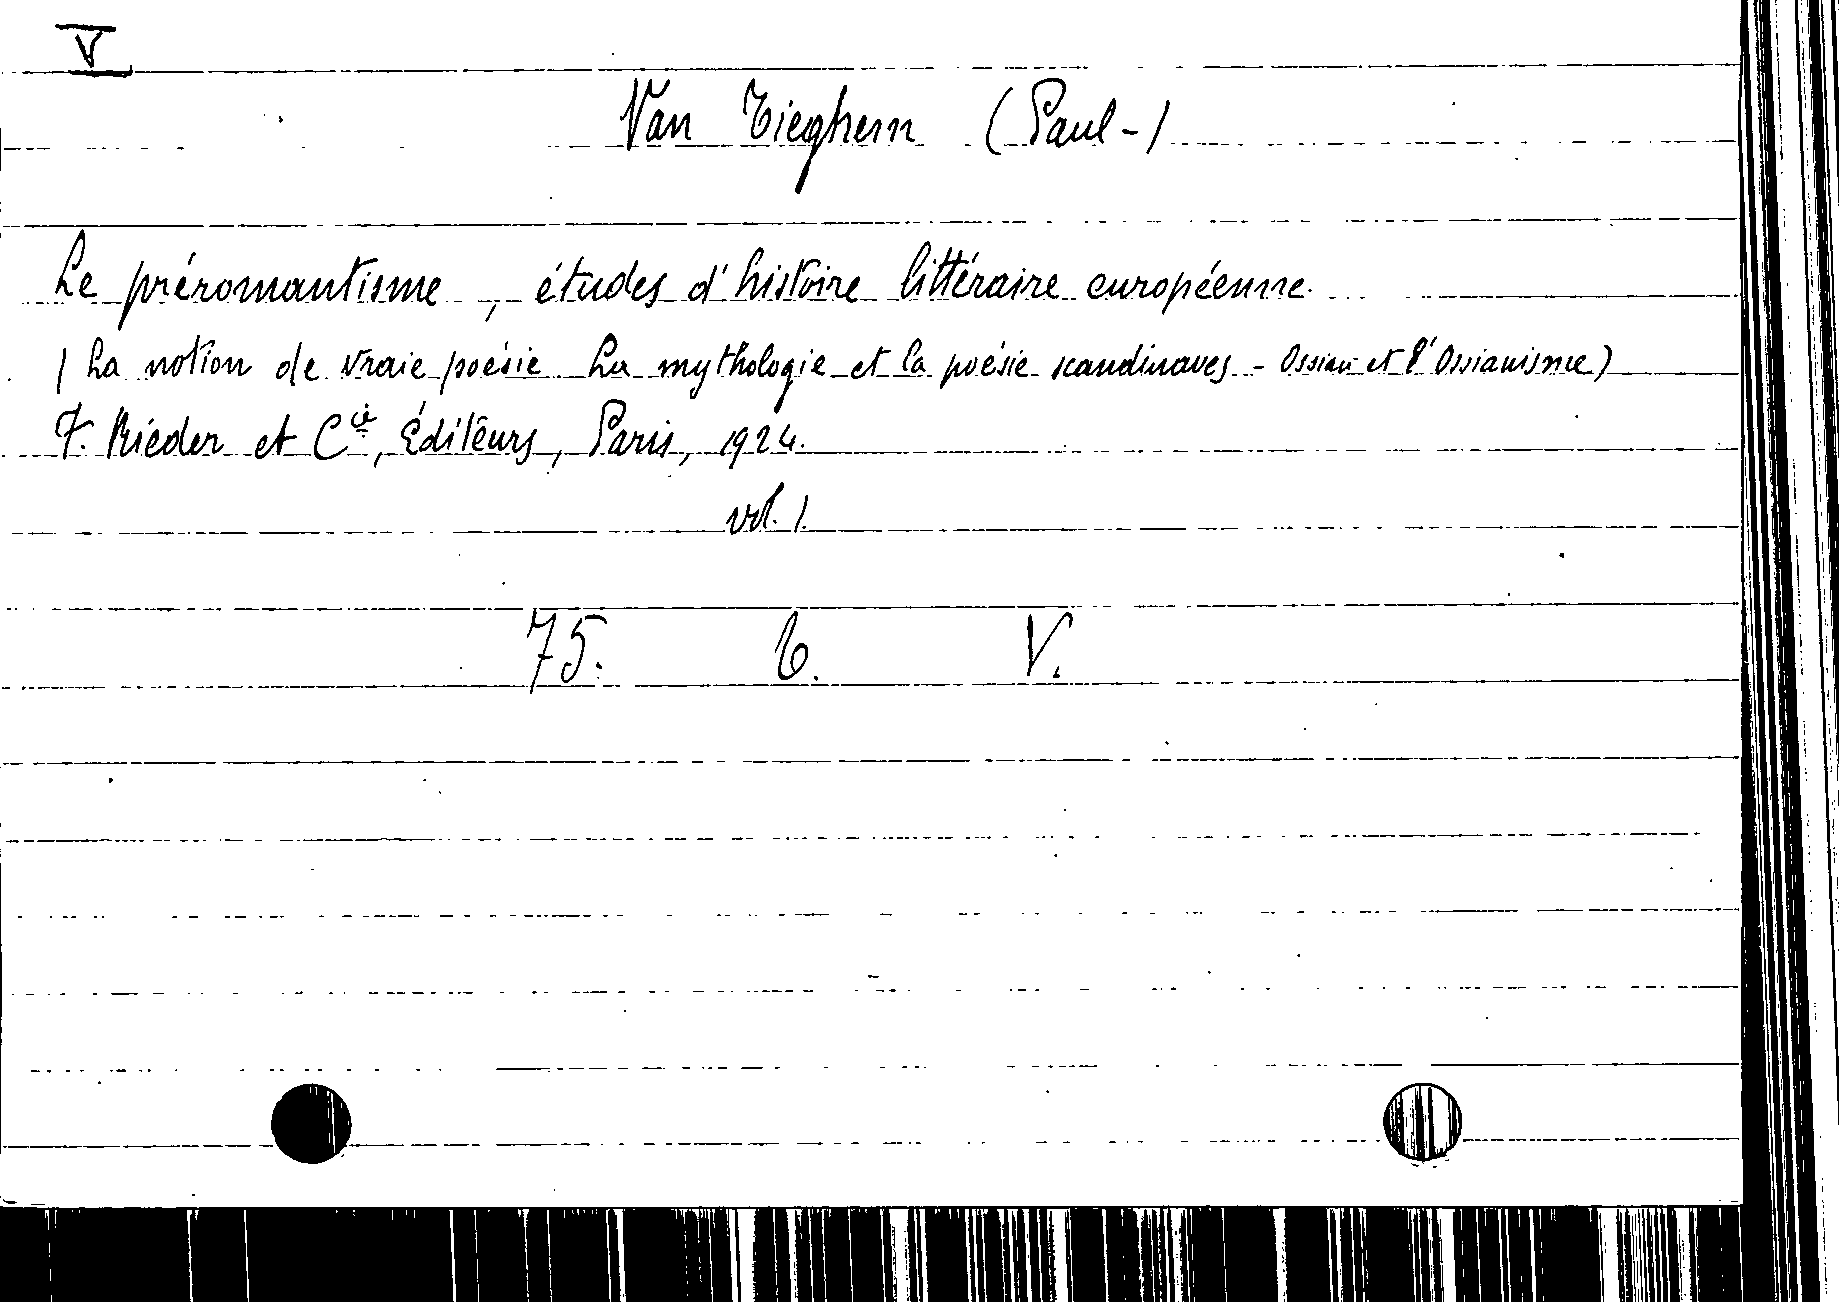 V
Van Tieghem (Paul-)
Le préromantisme, études d'histoire littéraire européenne.
(La notion de vraie poésie La mythologie et la poésie scandinaves - Ossian et l'Ossianisme)
F. Rieder et Cie, Éditeurs, Paris, 1924.
vol. 1.
75. b. V.